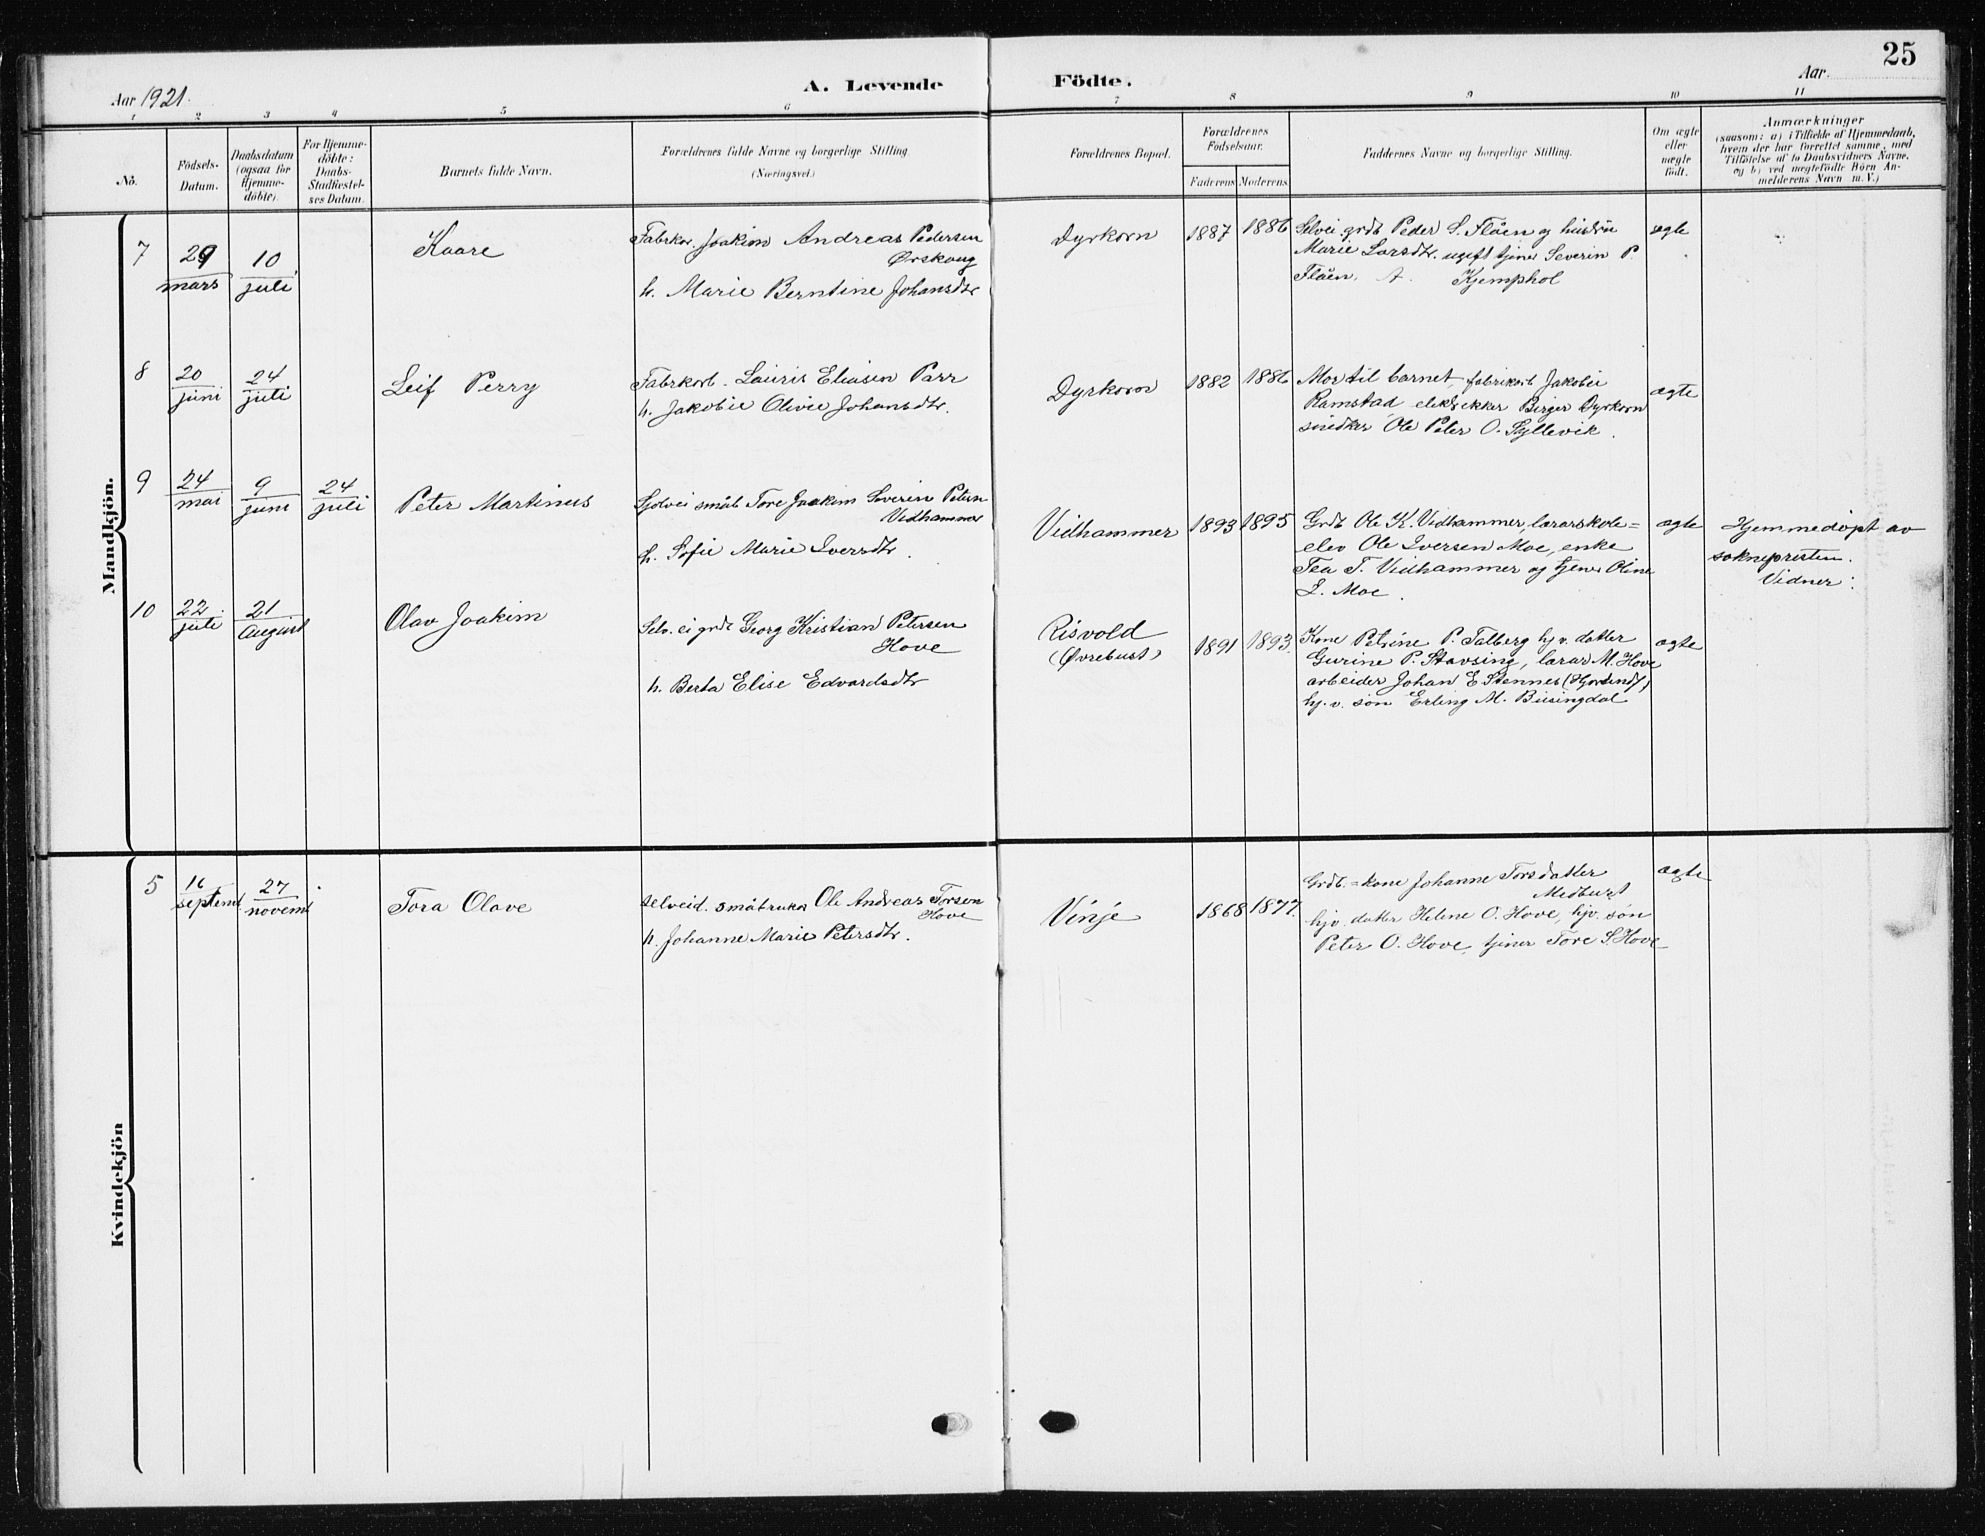 25
Aar 1921.
A. Levende
Födte.
Aar.
1 2 3 4 5 6 7 8 9 10 11
No.
Födsels-
Datum.
Daabsdatum
(ogsaa for
Hjemme-
döbte).
For Hjemme-
döbte:
Daabs-
Stadfæstel-
ses Datum.
Barnets fulde Navn.
Forældrenes fulde Navne og borgerlige Stilling
(Næringsvei.)
Forældrenes Bopæl.
Forældrenes
Födselsaar.
Faderens Moderens
Faddernes Navne og borgerlige Stilling.
Om ægte
eller
uægte
födt.
Anmærkninger
(saasom: a) i Tilfælde af Hjemmedaab,
hvem der har forrettet samme, med
Tilföielse af to Daabsvidners Navne,
og b) ved uægtefödte Börn An-
melderens Navn m. V.)
Mandkjön.
7
29
mars
10
juli
Kaare
Joakim Andreas Pedersen
Ørskoug
h. Marie Berntine Johansdtr
Dyrkorn
1887 1886
Selvei. grdb Peder S. Flåen og hustru
Marie Larsdtr. ugift tjener Severin P.
Flåen. A. Kjemphol
ægte
8
20
juni
24
juli
Leif Perry
Fabrkarb. Lauris Eliasen Parr
h. Jakobie Olivie Johansdtr.
Dyrkorn
1882 1886
Mor til barnet, fabrikarb Jakobie
Ramstad elektrikker Birger Dyrkorn
snedker Ole Peter O. Syllevik.
ægte
9
24
mai
9
juni
24
juli
Peter Martinus
Sjølvei småb Tore Joakim Severin Petersn
Vidhammer
h. Sofie Marie Iversdtr.
Vidhammer
1893 1895
Grdb Ole K. Vidhammer, lærarskole=
elev Ole Iversen Moe, enke
Tea T. Vidhammer og tjener Oline
I. Moe.
ægte
Hjemmedøpt av
soknepresten.
Vidner:
10
22
juli
21
august
Olav Joakim
Selv. ei grdb Georg Kristian Petersen
Hove
h. Berta Elise Edvardsdtr
Risvold
(Øvrebust)
1891 1893.
Kone Petrine P. Talberg hj.v. datter
Gurine P. Stavsing, lærar M. Hove
arbeider Johan E Stennes (Hjørundfj)
hj. v. søn Erling M. Busingdal
ægte
Kvindekjön
5
16
septemb
27
novemb
Tora Olave
selveid. småbruker Ole Andreas Torsen
Hove
h. Johanne Marie Petersdtr.
Vinje
1868 1877.
Grdb.=kone Johanne Torsdatter
Medbust
hjv. datter Helene O. Hove, hjv. søn
Peter O. Hove, tjener Tore S. Hove
ægte